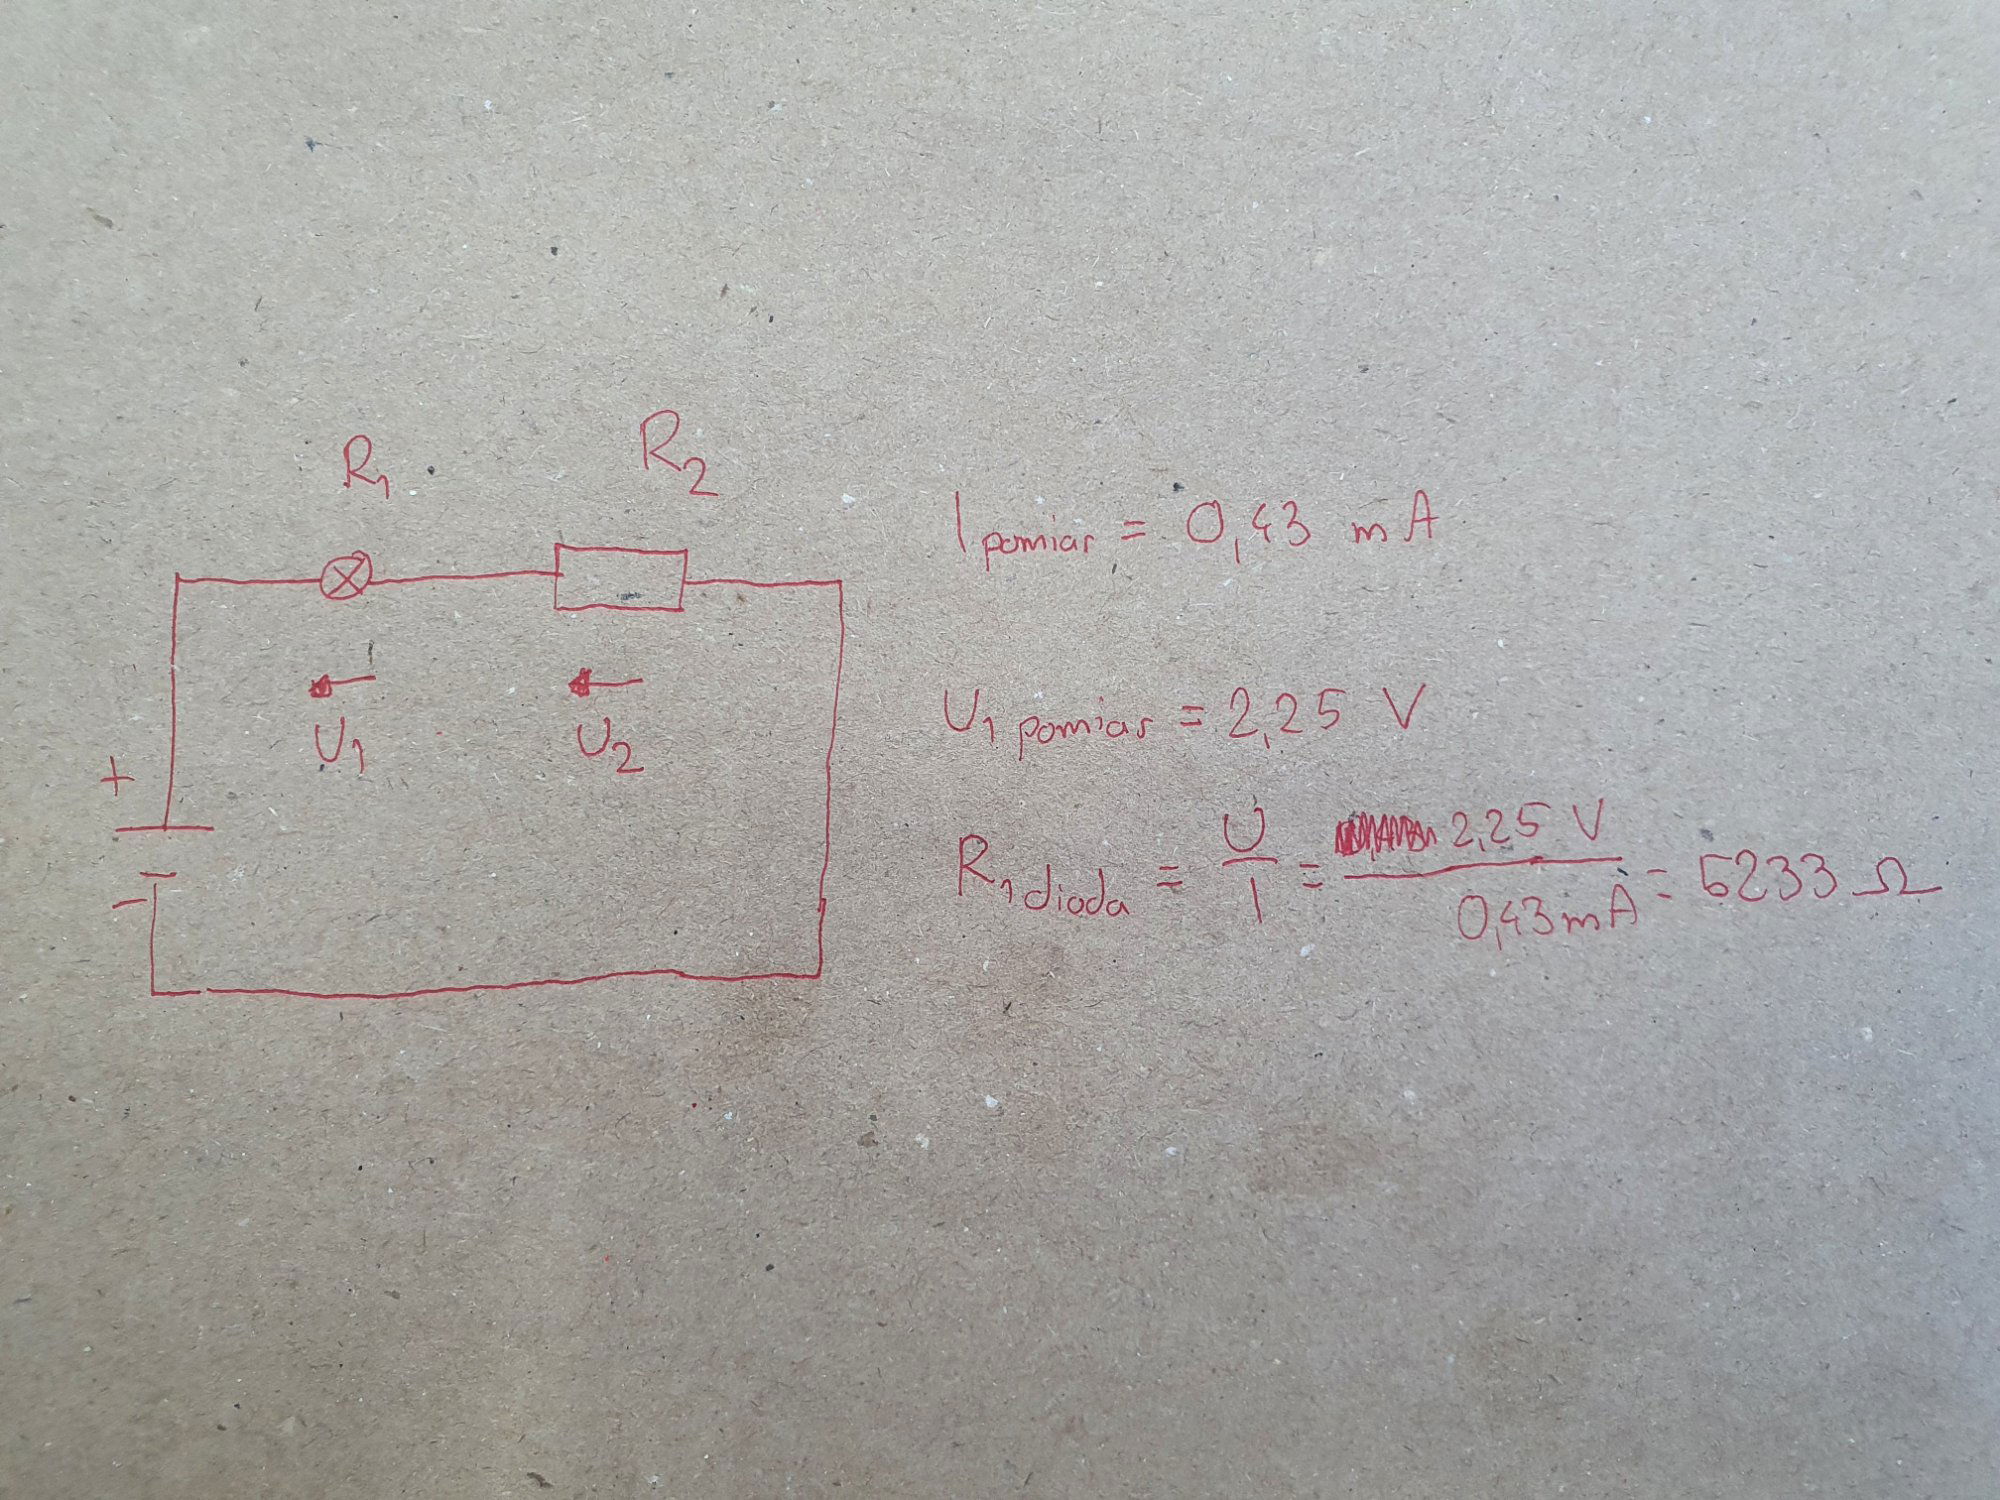 R1
R2
I pomiar = 0,43 mA
U1
U2
U1 pomiar = 2,25 V
+
-
R1 dioda = U/I = 2,25 V / 0,43 mA = 5233 Ω